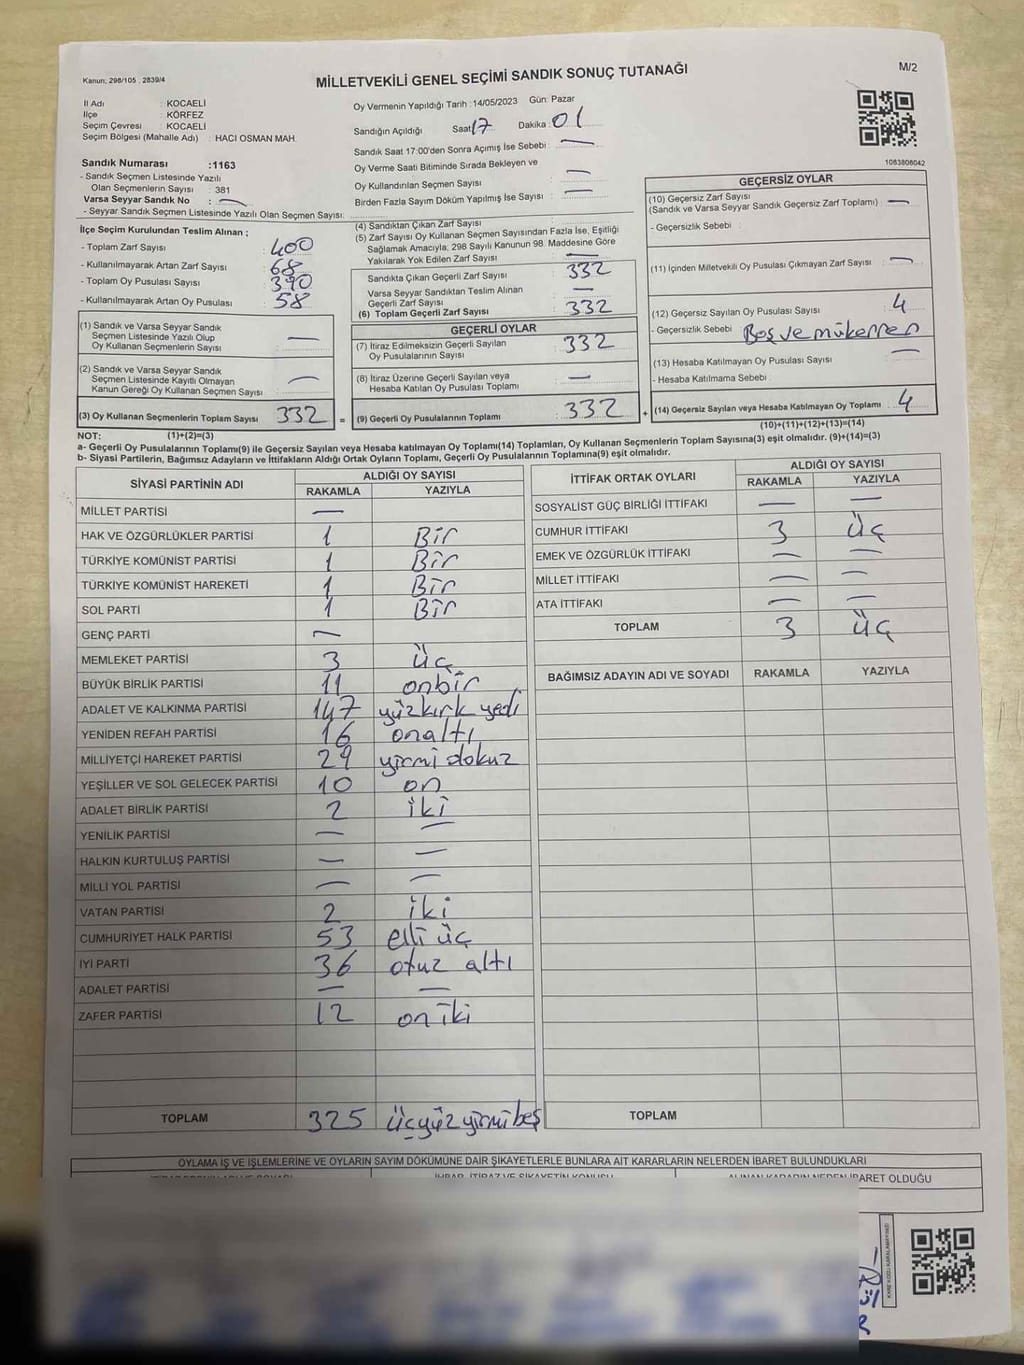 Kanun; 298/105 , 2839/4
MİLLETVEKİLİ GENEL SEÇİMİ SANDIK SONUÇ TUTANAĞI
M/2
İl Adı : KOCAELİ
İlçe : KÖRFEZ
Seçim Çevresi : KOCAELİ
Seçim Bölgesi (Mahalle Adı) : HACI OSMAN MAH.
Sandık Numarası :1163
- Sandık Seçmen Listesinde Yazılı
Olan Seçmenlerin Sayısı : 381
Varsa Seyyar Sandık No : —
- Seyyar Sandık Seçmen Listesinde Yazılı Olan Seçmen Sayısı:
Oy Vermenin Yapıldığı Tarih :14/05/2023 Gün: Pazar
Sandığın Açıldığı Saat 17 Dakika : 01
Sandık Saat 17:00'den Sonra Açımış İse Sebebi : —
Oy Verme Saati Bitiminde Sırada Bekleyen ve
Oy Kullandırılan Seçmen Sayısı —
Birden Fazla Sayım Döküm Yapılmış İse Sayısı : —
1083808042
İlçe Seçim Kurulundan Teslim Alınan ;
- Toplam Zarf Sayısı : 400
- Kullanılmayarak Artan Zarf Sayısı : 68
- Toplam Oy Pusulası Sayısı : 390
- Kullanılmayarak Artan Oy Pusulası : 58
(1) Sandık ve Varsa Seyyar Sandık
Seçmen Listesinde Yazılı Olup
Oy Kullanan Seçmenlerin Sayısı : —
(2) Sandık ve Varsa Seyyar Sandık
Seçmen Listesinde Kayıtlı Olmayan
Kanun Gereği Oy Kullanan Seçmen Sayısı : —
(3) Oy Kullanan Seçmenlerin Toplam Sayısı 332 =
(4) Sandıktan Çıkan Zarf Sayısı :
(5) Zarf Sayısı Oy Kullanan Seçmen Sayısından Fazla İse, Eşitliği
Sağlamak Amacıyla; 298 Sayılı Kanunun 98. Maddesine Göre
Yakılarak Yok Edilen Zarf Sayısı : —
Sandıkta Çıkan Geçerli Zarf Sayısı : 332
Varsa Seyyar Sandıktan Teslim Alınan
Geçerli Zarf Sayısı : —
(6) Toplam Geçerli Zarf Sayısı : 332
GEÇERLİ OYLAR
(7) İtiraz Edilmeksizin Geçerli Sayılan
Oy Pusulalarının Sayısı : 332
(8) İtiraz Üzerine Geçerli Sayılan veya
Hesaba Katılan Oy Pusulası Toplamı : —
(9) Geçerli Oy Pusulalarının Toplamı : 332 +
GEÇERSİZ OYLAR
(10) Geçersiz Zarf Sayısı
(Sandık ve Varsa Seyyar Sandık Geçersiz Zarf Toplamı) : —
- Geçersizlik Sebebi :
(11) İçinden Milletvekili Oy Pusulası Çıkmayan Zarf Sayısı : —
(12) Geçersiz Sayılan Oy Pusulası Sayısı : 4
- Geçersizlik Sebebi : Boş ve mükerrer
(13) Hesaba Katılmayan Oy Pusulası Sayısı : —
- Hesaba Katılmama Sebebi :
(14) Geçersiz Sayılan veya Hesaba Katılmayan Oy Toplamı : 4
(10)+(11)+(12)+(13)=(14)
NOT: (1)+(2)=(3)
a- Geçerli Oy Pusulalarının Toplamı(9) ile Geçersiz Sayılan veya Hesaba katılmayan Oy Toplamı(14) Toplamları, Oy Kullanan Seçmenlerin Toplam Sayısına(3) eşit olmalıdır. (9)+(14)=(3)
b- Siyasi Partilerin, Bağımsız Adayların ve İttifakların Aldığı Ortak Oyların Toplamı, Geçerli Oy Pusulalarının Toplamına(9) eşit olmalıdır.
SİYASİ PARTİNİN ADI ALDIĞI OY SAYISI
RAKAMLA YAZIYLA
MİLLET PARTİSİ —
HAK VE ÖZGÜRLÜKLER PARTİSİ 1 Bir
TÜRKİYE KOMÜNİST PARTİSİ 1 Bir
TÜRKİYE KOMÜNİST HAREKETİ 1 Bir
SOL PARTİ 1 Bir
GENÇ PARTİ —
MEMLEKET PARTİSİ 3 üç
BÜYÜK BİRLİK PARTİSİ 11 onbir
ADALET VE KALKINMA PARTİSİ 147 yüzkırk yedi
YENİDEN REFAH PARTİSİ 16 onaltı
MİLLİYETÇİ HAREKET PARTİSİ 29 yirmi dokuz
YEŞİLLER VE SOL GELECEK PARTİSİ 10 on
ADALET BİRLİK PARTİSİ 2 iki
YENİLİK PARTİSİ — —
HALKIN KURTULUŞ PARTİSİ — —
MİLLİ YOL PARTİSİ — —
VATAN PARTİSİ 2 iki
CUMHURİYET HALK PARTİSİ 53 elli üç
İYİ PARTİ 36 otuz altı
ADALET PARTİSİ — —
ZAFER PARTİSİ 12 on iki
TOPLAM 325 üçyüz yirmibeş
İTTİFAK ORTAK OYLARI ALDIĞI OY SAYISI
RAKAMLA YAZIYLA
SOSYALİST GÜÇ BİRLİĞİ İTTİFAKI — —
CUMHUR İTTİFAKI 3 üç
EMEK VE ÖZGÜRLÜK İTTİFAKI — —
MİLLET İTTİFAKI — —
ATA İTTİFAKI — —
TOPLAM 3 üç
BAĞIMSIZ ADAYIN ADI VE SOYADI RAKAMLA YAZIYLA
TOPLAM
OYLAMA İŞ VE İŞLEMLERİNE VE OYLARIN SAYIM DÖKÜMÜNE DAİR ŞİKAYETLERLE BUNLARA AİT KARARLARIN NELERDEN İBARET BULUNDUKLARI
İHBAR, İTİRAZ VE ŞİKAYETİN KONUSU ALINAN KARARIN NEDEN İBARET OLDUĞU